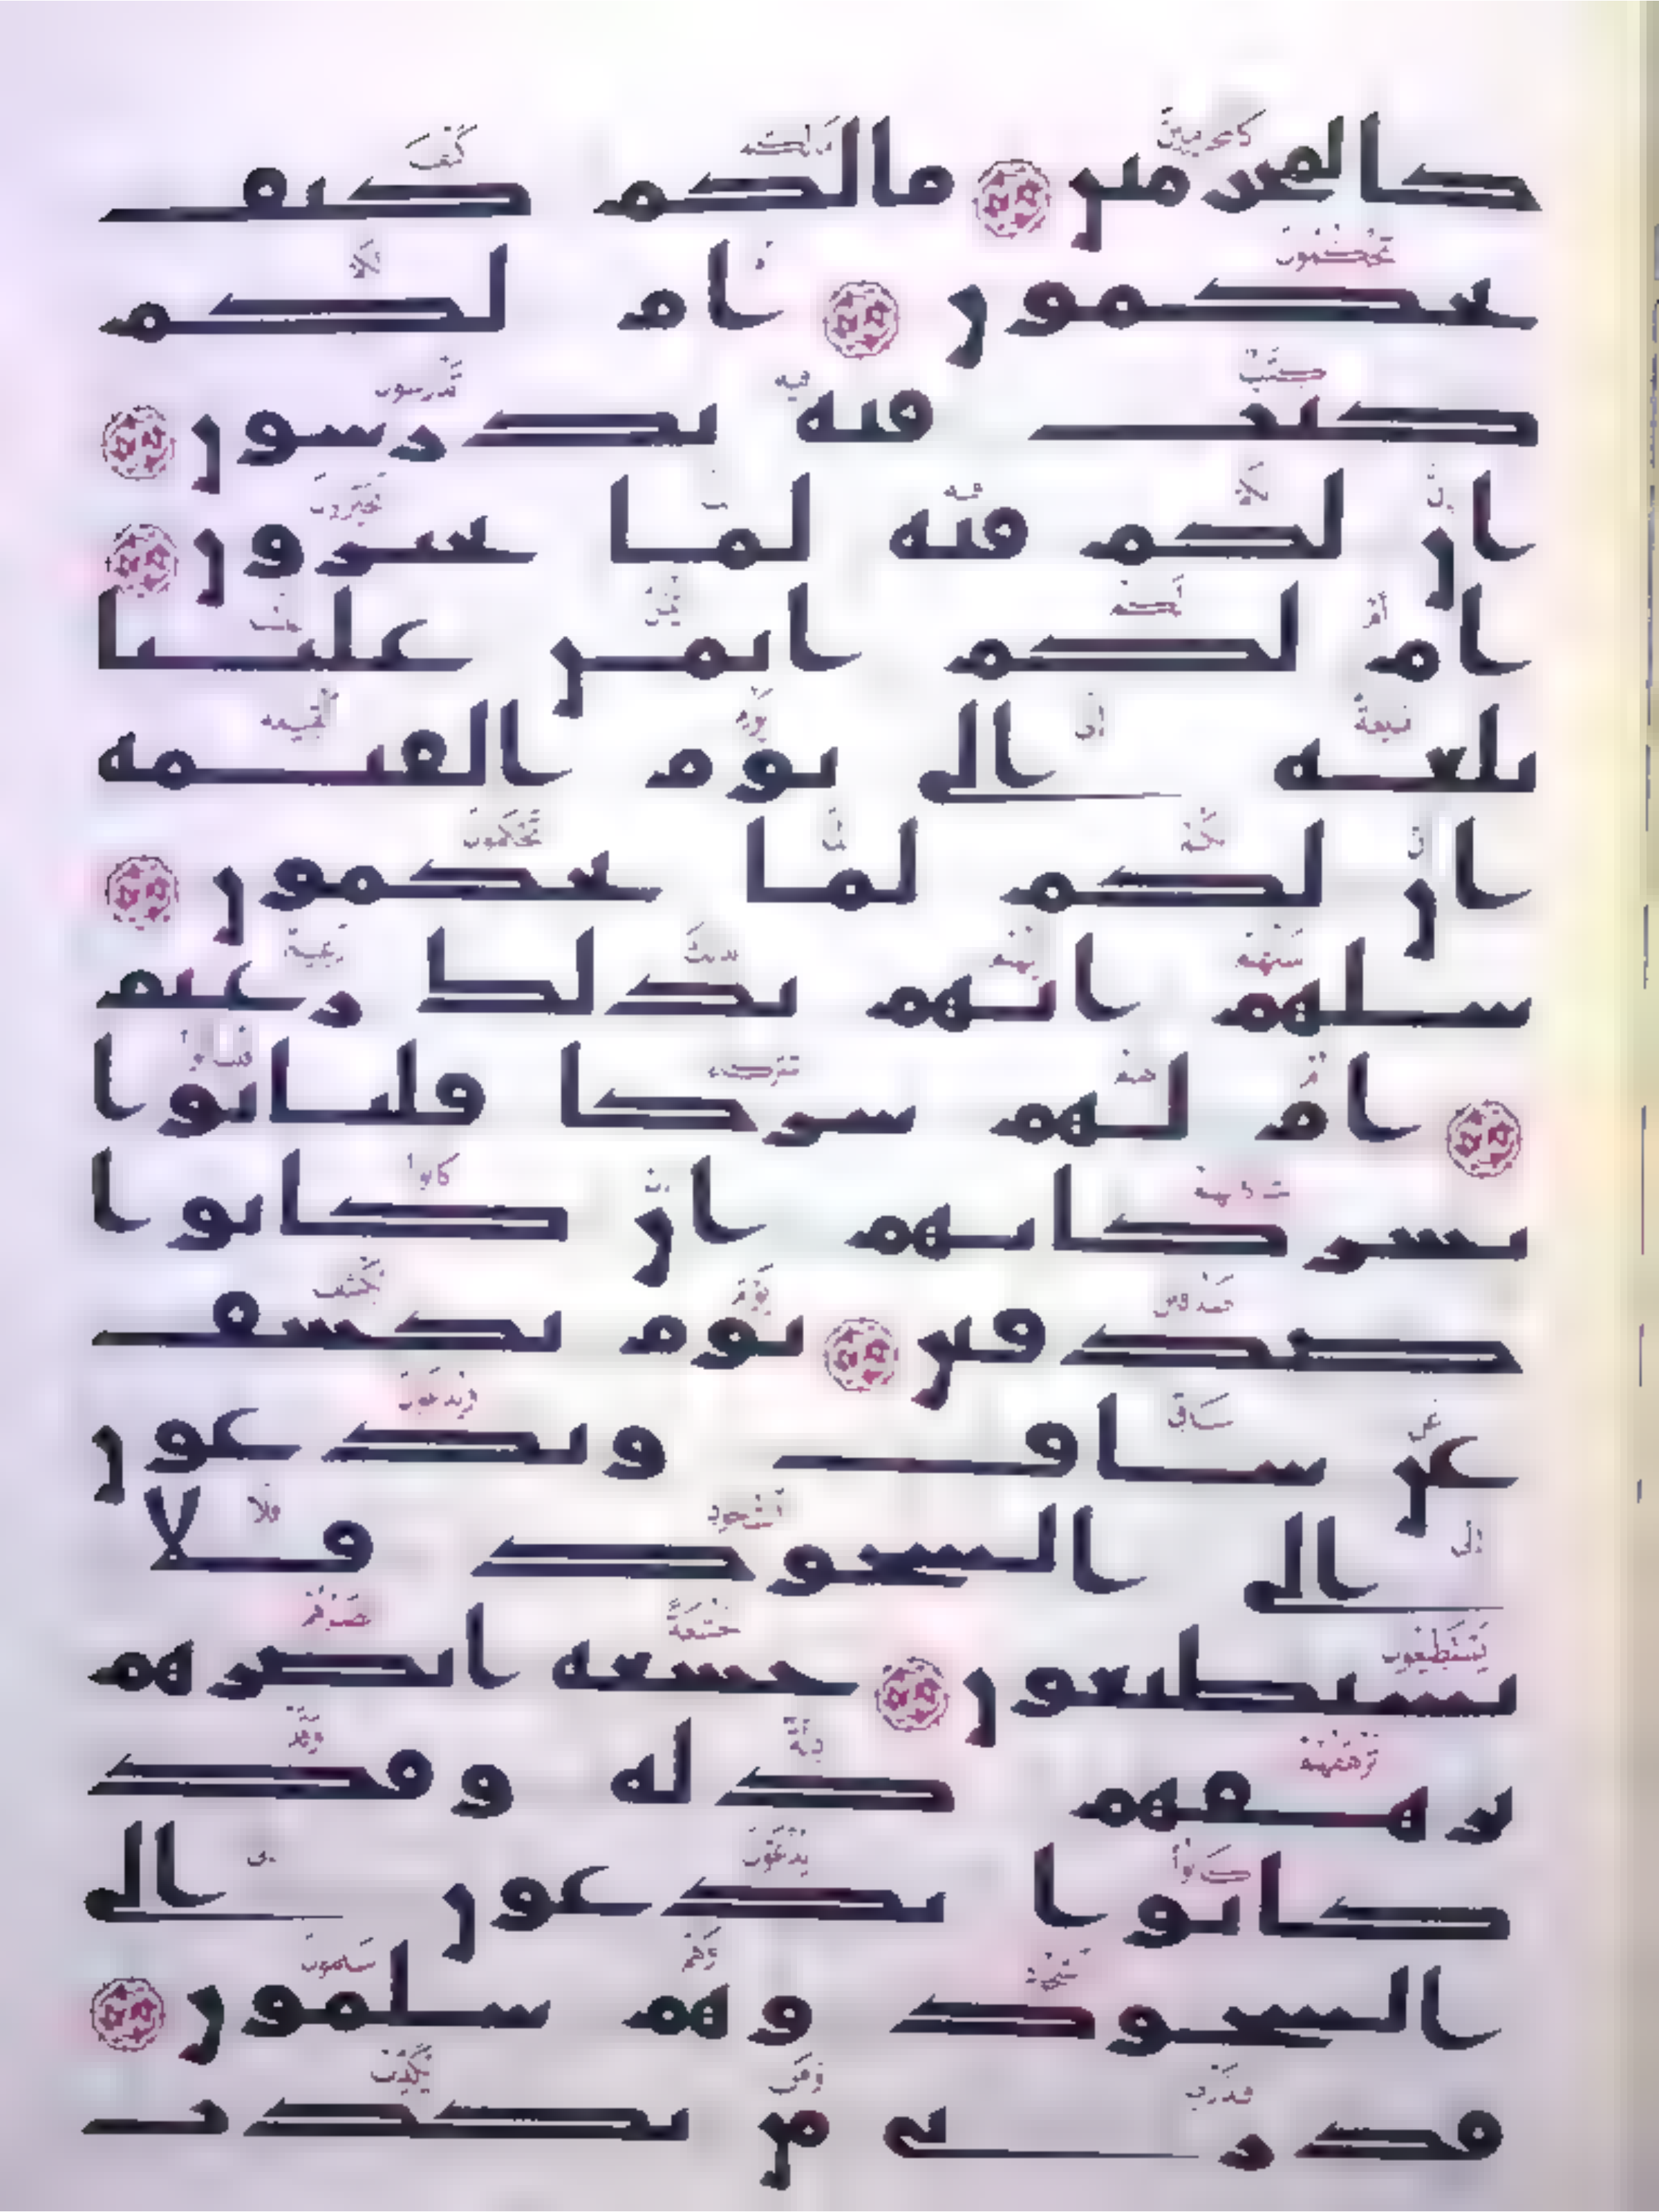 كالمجرمين مالكم كيف
تحكمون ام لكم
كتب فيه تدرسون
ان لكم فيه لما تخيرون
ام لكم ايمن علينا
بلغه الى يوم القيمه
ان لكم لما تحكمون
سلهم ايهم بذلك زعيم
ام لهم شركا فلياتوا
بشركايهم ان كانوا
صدقين يوم يكشف
عن ساق ويدعون
الى السجود فلا
يستطيعون خشعه ابصرهم
ترهقهم ذله وقد
كانوا يدعون الى
السجود وهم سلمون
فذرني ومن يكذب